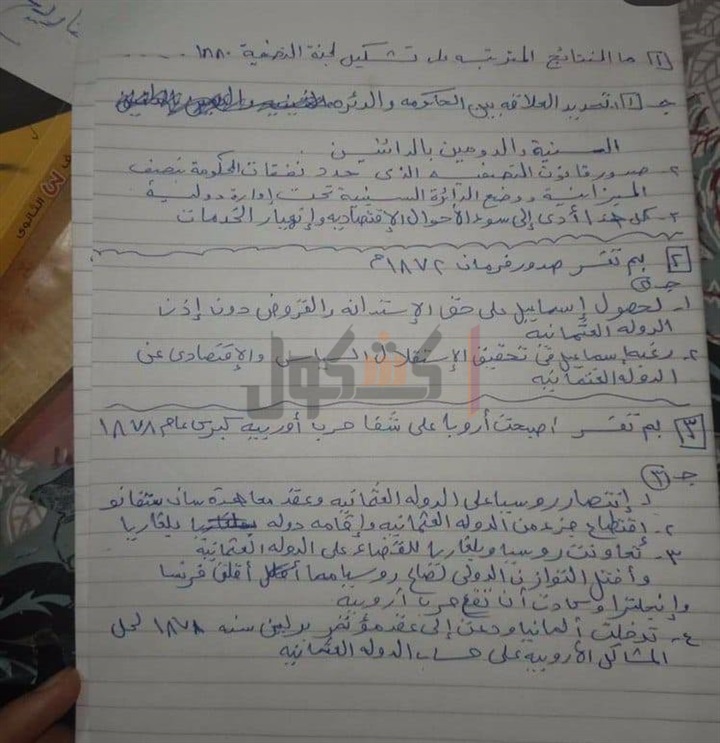 ١ ما النتائج المترتبه على تشكيل لجنة التصفية ١٨٨٠ ....
جـ ١ ١. تحديد العلاقه بين الحكومه والدئره
السنية والدومين بالدائنين
٢- صدور قانون التصفيه الذى حدد نفقات الحكومة بنصف
الميزانية ووضع الدائرة السنية تحت إدارة دولية
٣- كل هذا أدى إلى سوء الأحوال الإقتصاديه وإنهيار الخدمات
٢ بم تفسر صدور فرمان ١٨٧٢م
جـ ٢
١- لحصول إسماعيل على حق الإستدانه والقروض دون إذن
الدوله العثمانية
٢- رغبه إسماعيل فى تحقيق الإستقلال السياسى والإقتصادى عن
الدوله العثمانيه
كشكول
٣ بم تفسر اصبحت أروبا على شفا حرب أوربيه كبرى عام ١٨٧٨
جـ ٣
١- إنتصار روسيا على الدوله العثمانيه وعقد معاهدة سان ستفانو
٢- إقتطاع جزء من الدوله العثمانيه وإقامه دوله بلغاريا
٣- تعاونت روسيا وبلغاريا للقضاء على الدوله العثمانية
وأختل التوازن الدولى لصالح روسيا مما أقلق فرنسا
وإنجلترا وكادت أن تقع حرب أروبية
٤- تدخلت ألمانيا ودعت إلى عقد مؤتمر برلين سنه ١٨٧٨ لحل
المشاكل الأروبيه على حساب الدوله العثمانيه
الثانوى